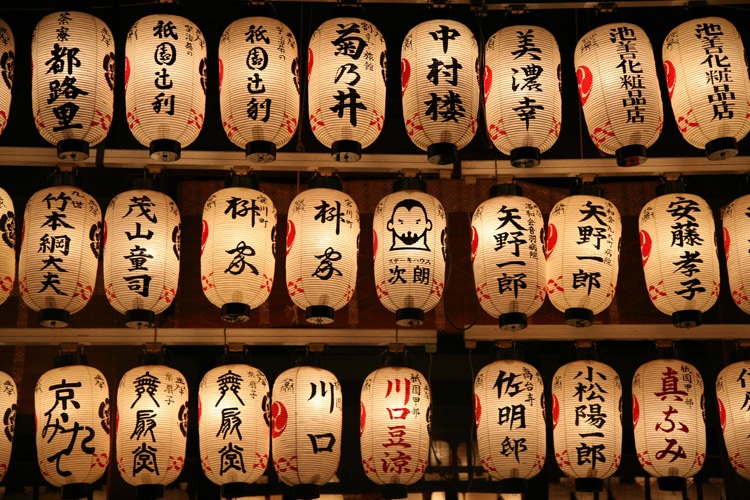 茶家
都路里
祇園辻利
祇園辻利
菊乃井
中村楼
美濃幸
池善化粧品店
池善化粧品店
竹本綱大夫
茂山童司
桝家
桝家
ステーキハウス
次朗
矢野一郎
矢野一郎
安藤孝子
京みたて
舞扇堂
舞扇堂
川口
祇園甲部
川口豆涼
佐明邸
小松陽一郎
祇園甲部
真ふみ